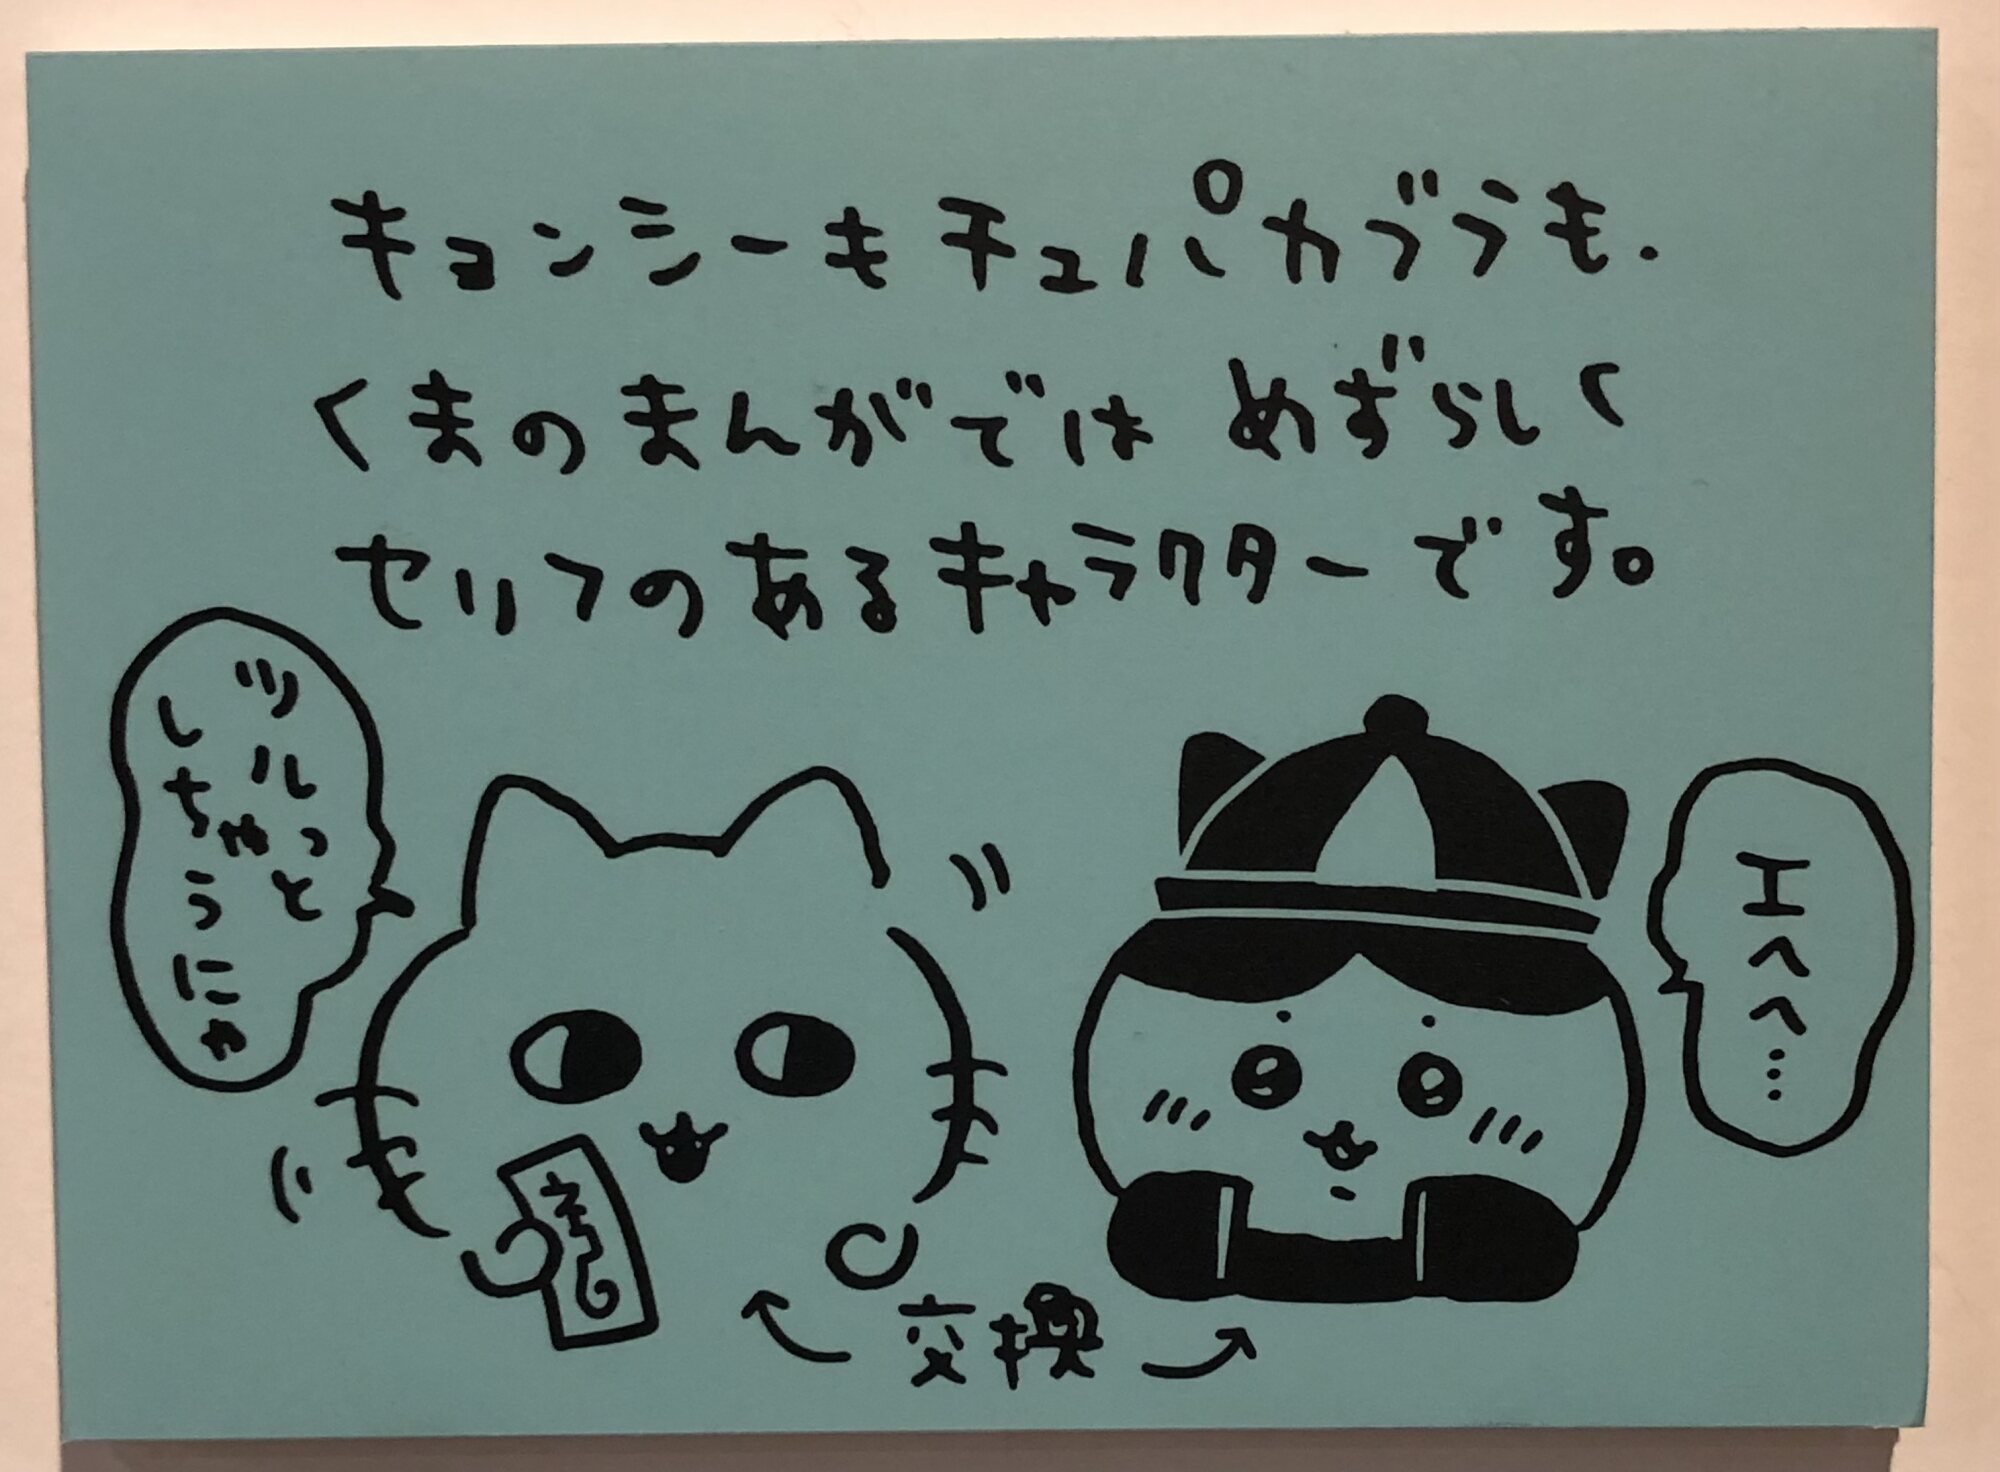 キョンシーもチュパカブラも、
くまのまんがでは めずらしく
セリフのあるキャラクターです。
ツルっと
しちゃうにゃ
エヘヘ…
交換